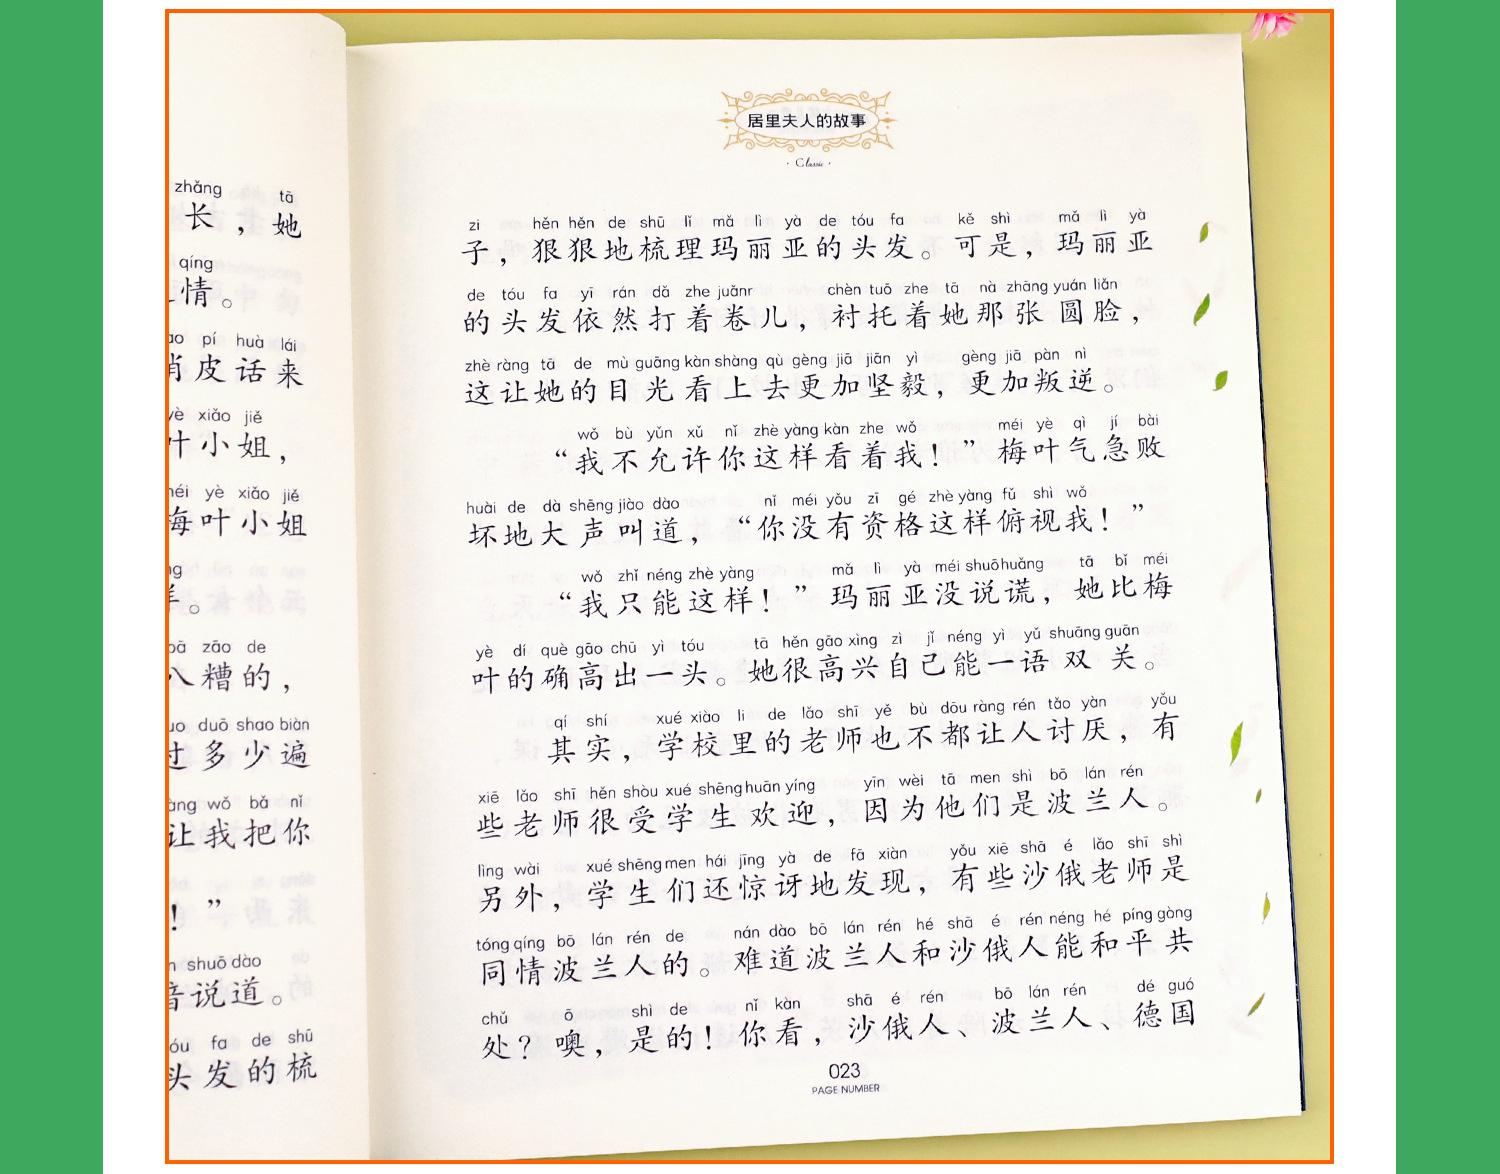 zhǎng tā
长，她
qíng
情。
pí huà lái
皮话来
xiǎo jiě
叶小姐，
yè xiǎo jiě
梅叶小姐
。
zāo de
八糟的，
duō shao biàn
过多少遍
wǒ bǎ nǐ
让我把你
！”
shuō dào
音说道。
fa de shū
头发的梳
居里夫人的故事
· Classic ·
zi hěn hěn de shū lǐ mǎ lì yà de tóu fa kě shì mǎ lì yà
子，狠狠地梳理玛丽亚的头发。可是，玛丽亚
de tóu fa yī rán dǎ zhe juǎnr chèn tuō zhe tā nà zhāng yuán liǎn
的头发依然打着卷儿，衬托着她那张圆脸，
zhè ràng tā de mù guāng kàn shàng qù gèng jiā jiān yì gèng jiā pàn nì
这让她的目光看上去更加坚毅，更加叛逆。
wǒ bù yǔn xǔ nǐ zhè yàng kàn zhe wǒ méi yè qì jí bài
“我不允许你这样看着我！”梅叶气急败
huài de dà shēng jiào dào nǐ méi yǒu zī gé zhè yàng fǔ shì wǒ
坏地大声叫道，“你没有资格这样俯视我！”
wǒ zhǐ néng zhè yàng mǎ lì yà méi shuō huǎng tā bǐ méi
“我只能这样！”玛丽亚没说谎，她比梅
yè dí què gāo chū yì tóu tā hěn gāo xìng zì jǐ néng yì yǔ shuāng guān
叶的确高出一头。她很高兴自己能一语双关。
qí shí xué xiào li de lǎo shī yě bù dōu ràng rén tǎo yàn yǒu
其实，学校里的老师也不都让人讨厌，有
xiē lǎo shī hěn shòu xué shēng huān yíng yīn wèi tā men shì bō lán rén
些老师很受学生欢迎，因为他们是波兰人。
lìng wài xué shēng men hái jīng yà de fā xiàn yǒu xiē shā é lǎo shī shì
另外，学生们还惊讶地发现，有些沙俄老师是
tóng qíng bō lán rén de nán dào bō lán rén hé shā é rén néng hé píng gòng
同情波兰人的。难道波兰人和沙俄人能和平共
chǔ ō shì de nǐ kàn shā é rén bō lán rén dé guó
处？噢，是的！你看，沙俄人、波兰人、德国
023
PAGE NUMBER